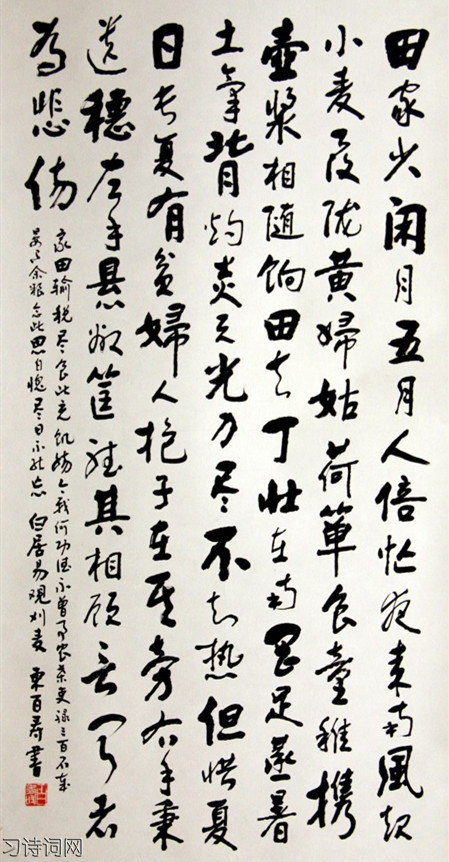 田家少闲月五月人倍忙夜来南風起
小麦覆陇黄婦姑荷箪食童稚携
壺漿相随餉田去丁壮在南冈足蒸暑
土氣背灼炎天光力尽不知热但惜夏
日长复有贫婦人抱子在其旁右手秉
遗穗左手悬敝筐听其相顾言闻者
为悲伤
家田输税尽食此充饥肠今我何功德不曾事农桑吏禄三百石岁
晏有余粮念此思自愧尽日不能忘 白居易观刈麦 百寿書
习诗词网